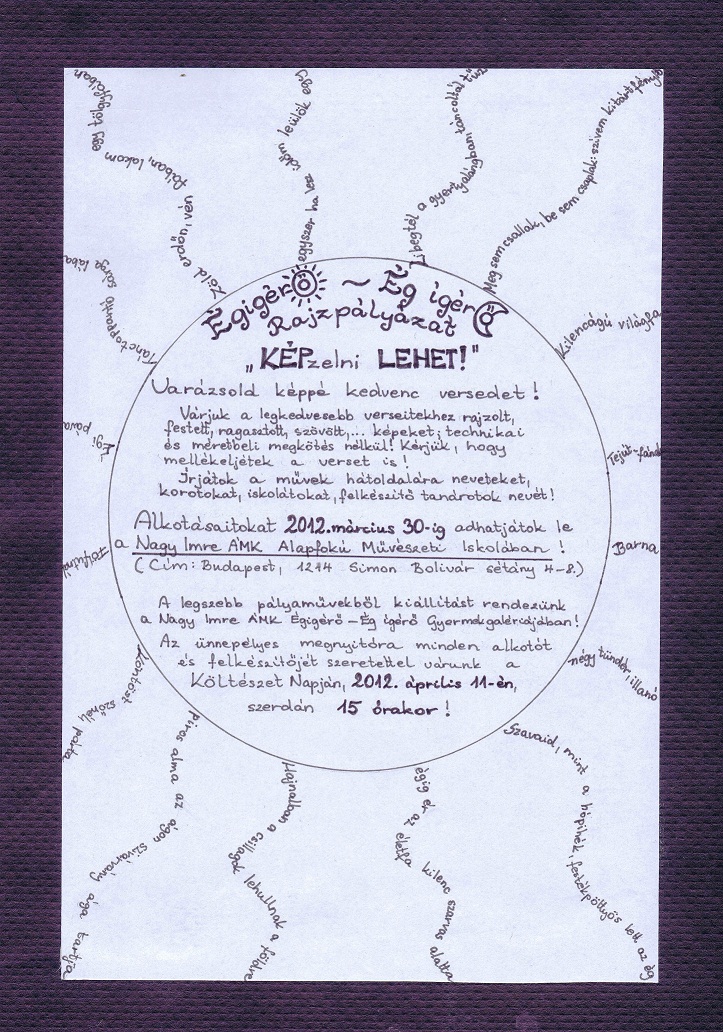 Égigérő ~ Ég ígérő
Rajzpályázat
„KÉPzelni LEHET!"
Varázsold képpé kedvenc versedet!
Várjuk a legkedvesebb verseitekhez rajzolt,
festett, ragasztott, szövött,... képeket; technikai
és méretbeli megkötés nélkül! Kérjük, hogy
mellékeljétek a verset is!
Írjátok a művek hátoldalára neveteket,
korotokat, iskolátokat, felkészítő tanárotok nevét!
Alkotásaitokat 2012. március 30-ig adhatjátok le
a Nagy Imre ÁMK Alapfokú Művészeti Iskolában!
(Cím: Budapest, 1214 Simon Bolivár sétány 4-8.)
A legszebb pályaművekből kiállítást rendezünk
a Nagy Imre ÁMK Égigérő-Ég ígérő Gyermekgalériájában!
Az ünnepélyes megnyitóra minden alkotót
és felkészítőjét szeretettel várunk a
Költészet Napján, 2012. április 11-én,
szerdán 15 órakor!
Zöld erdőn, vén fában, lakom egy tölgyfában
egyszer ha lesz időm leülök egy
Libegtél a gyertyalángban táncoltál
Meg sem csallak, be sem csaplak: szívem kitárt
Kilencágú világfa
Tejút-
Barna
négy tündér, illanó
Szavaid, mint a hópihék, festékpöttyös lett az ég
égig ér az életfa kilenc szarvas alatta
Hajnalban a csillagok lehullnak a földre
Piros alma az ágon szivárvány ága tartja
színéli parta
Égi páva
Tánctoppantó sárga lába